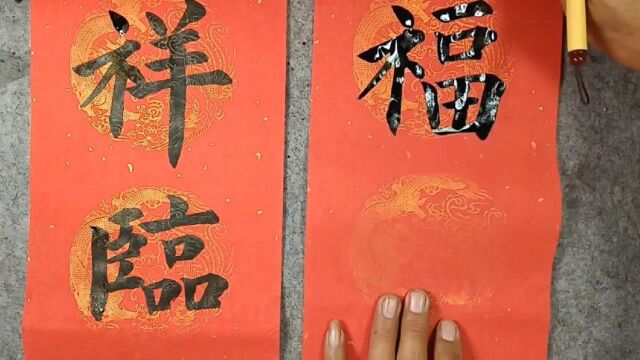 福
祥臨